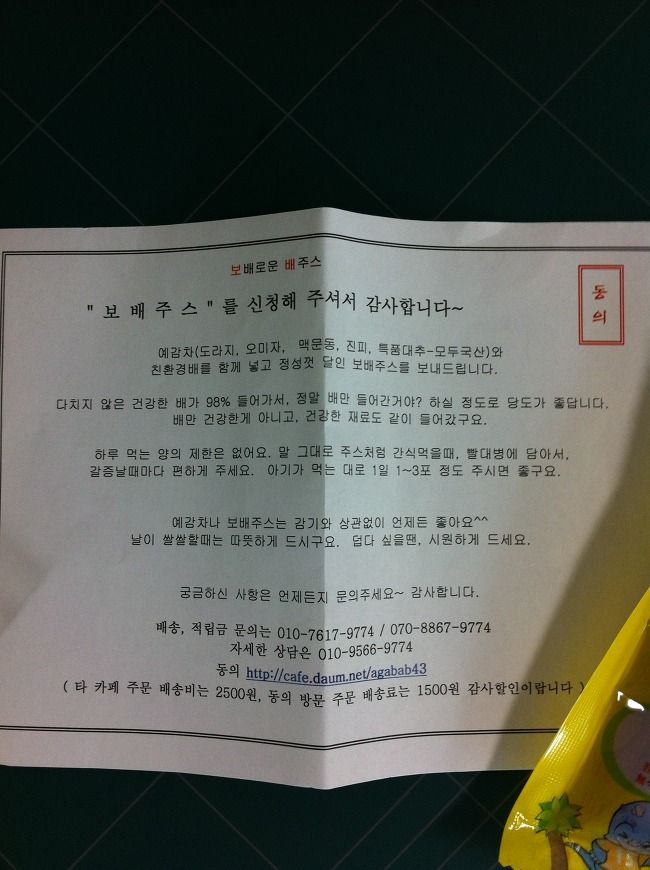 보배로운 배주스
동
의
" 보 배 주 스 " 를 신청해 주셔서 감사합니다~
예감차(도라지, 오미자, 맥문동, 진피, 특품대추-모두국산)와
친환경배를 함께 넣고 정성껏 달인 보배주스를 보내드립니다.
다치지 않은 건강한 배가 98% 들어가서, 정말 배만 들어간거야? 하실 정도로 당도가 좋답니다.
배만 건강한게 아니고, 건강한 재료도 같이 들어갔구요.
하루 먹는 양의 제한은 없어요. 말 그대로 주스처럼 간식먹을때, 빨대병에 담아서,
갈증날때마다 편하게 주세요. 아기가 먹는 대로 1일 1~3포 정도 주시면 좋구요.
예감차나 보배주스는 감기와 상관없이 언제든 좋아요^^
날이 쌀쌀할때는 따뜻하게 드시구요. 덥다 싶을땐, 시원하게 드세요.
궁금하신 사항은 언제든지 문의주세요~ 감사합니다.
배송, 적립금 문의는 010-7617-9774 / 070-8867-9774
자세한 상담은 010-9566-9774
동의 http://cafe.daum.net/agabab43
( 타 카페 주문 배송비는 2500원, 동의 방문 주문 배송료는 1500원 감사할인이랍니다 )